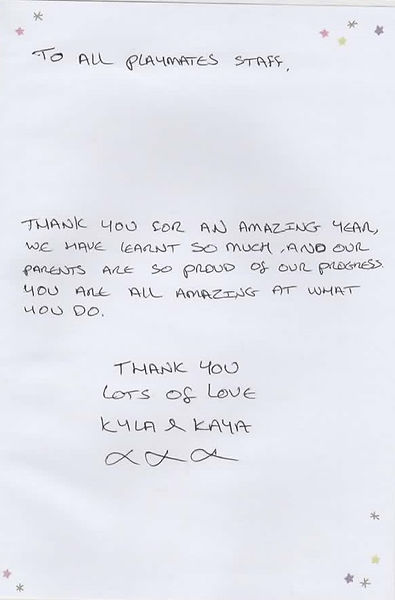 TO ALL PLAYMATES STAFF,
THANK YOU FOR AN AMAZING YEAR,
WE HAVE LEARNT SO MUCH, AND OUR
PARENTS ARE SO PROUD OF OUR PROGRESS.
YOU ARE ALL AMAZING AT WHAT
YOU DO.
THANK YOU
LOTS OF LOVE
KYLA & KAYA
xxx